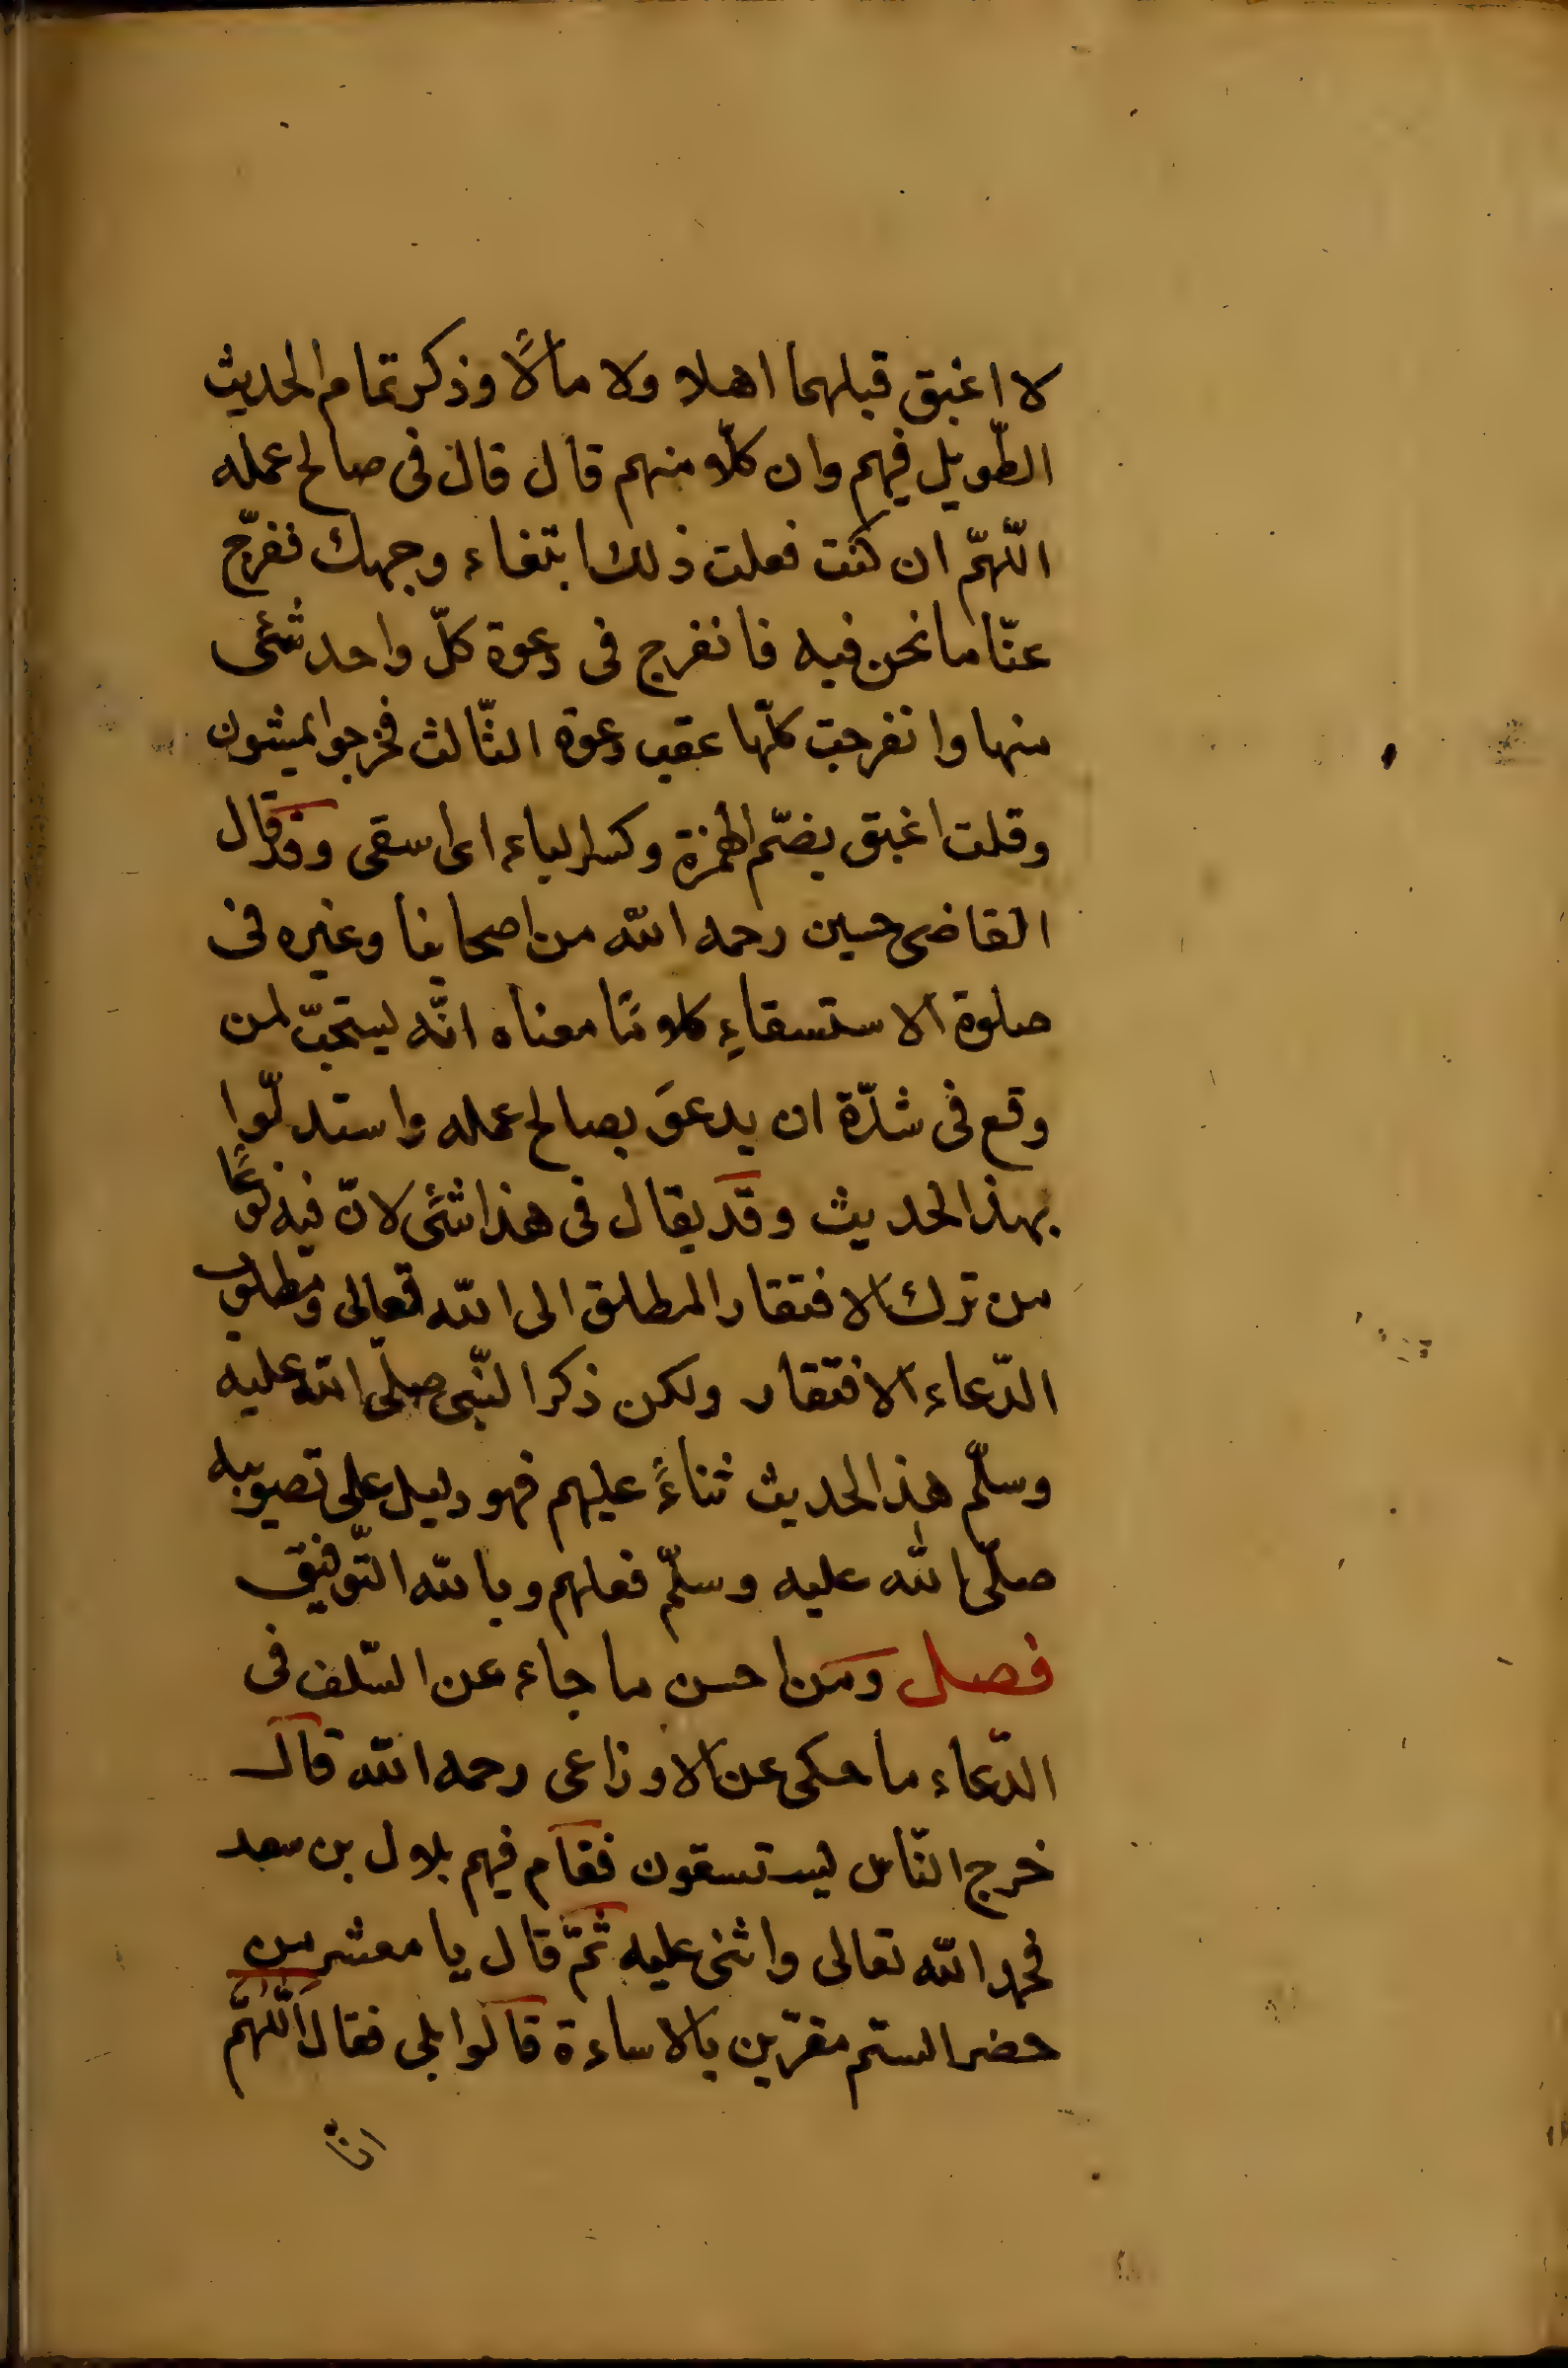 لا اغبق قبلهما اهلا ولا مالًا وذكر تمام الحديث
الطّويل فيهم وان كلّا منهم قال قال فى صالح عمله
اللّهمّ ان كنت فعلت ذلك ابتغاء وجهك ففرّج
عنّا ما نحن فيه فانفرج فى دعوة كلّ واحد شئى
منها وانفرجت كلّها عقب دعوة الثّالث فخرجوا يمشون
وقلت اغبق بضمّ الهمزة وكسر الباء اى اسقى وقد قال
القاضى حسين رحمه الله من اصحابنا وغيره فى
صلوة الاستسقاءِ كلامًا معناه انّه يستحبّ لمن
وقع فى شدّة ان يدعوَ بصالح عمله واستدلّوا
بهذا الحديث وقد يقال فى هذا شئى لانّ فيه نوعًا
من ترك الافتقار المطلق الى الله تعالى ومطلوب
الدّعاء الافتقار ولكن ذكر النّبى صلّى الله عليه
وسلّم هذا الحديث ثناءً عليهم فهو دليل على تصويبه
صلّى الله عليه وسلّم فعلهم وبالله التّوفيق
فصل ومن احسن ما جاء عن السّلف فى
الدّعاء ما حكى عن الاوزاعى رحمه الله قال
خرج النّاس يستسقون فقام فيهم بلال بن سعد
فحمد الله تعالى واثنى عليه ثمّ قال يا معشر من
حضر الستم مقرّين بالاساءة قالوا بلى فقال اللّهمّ
انّا